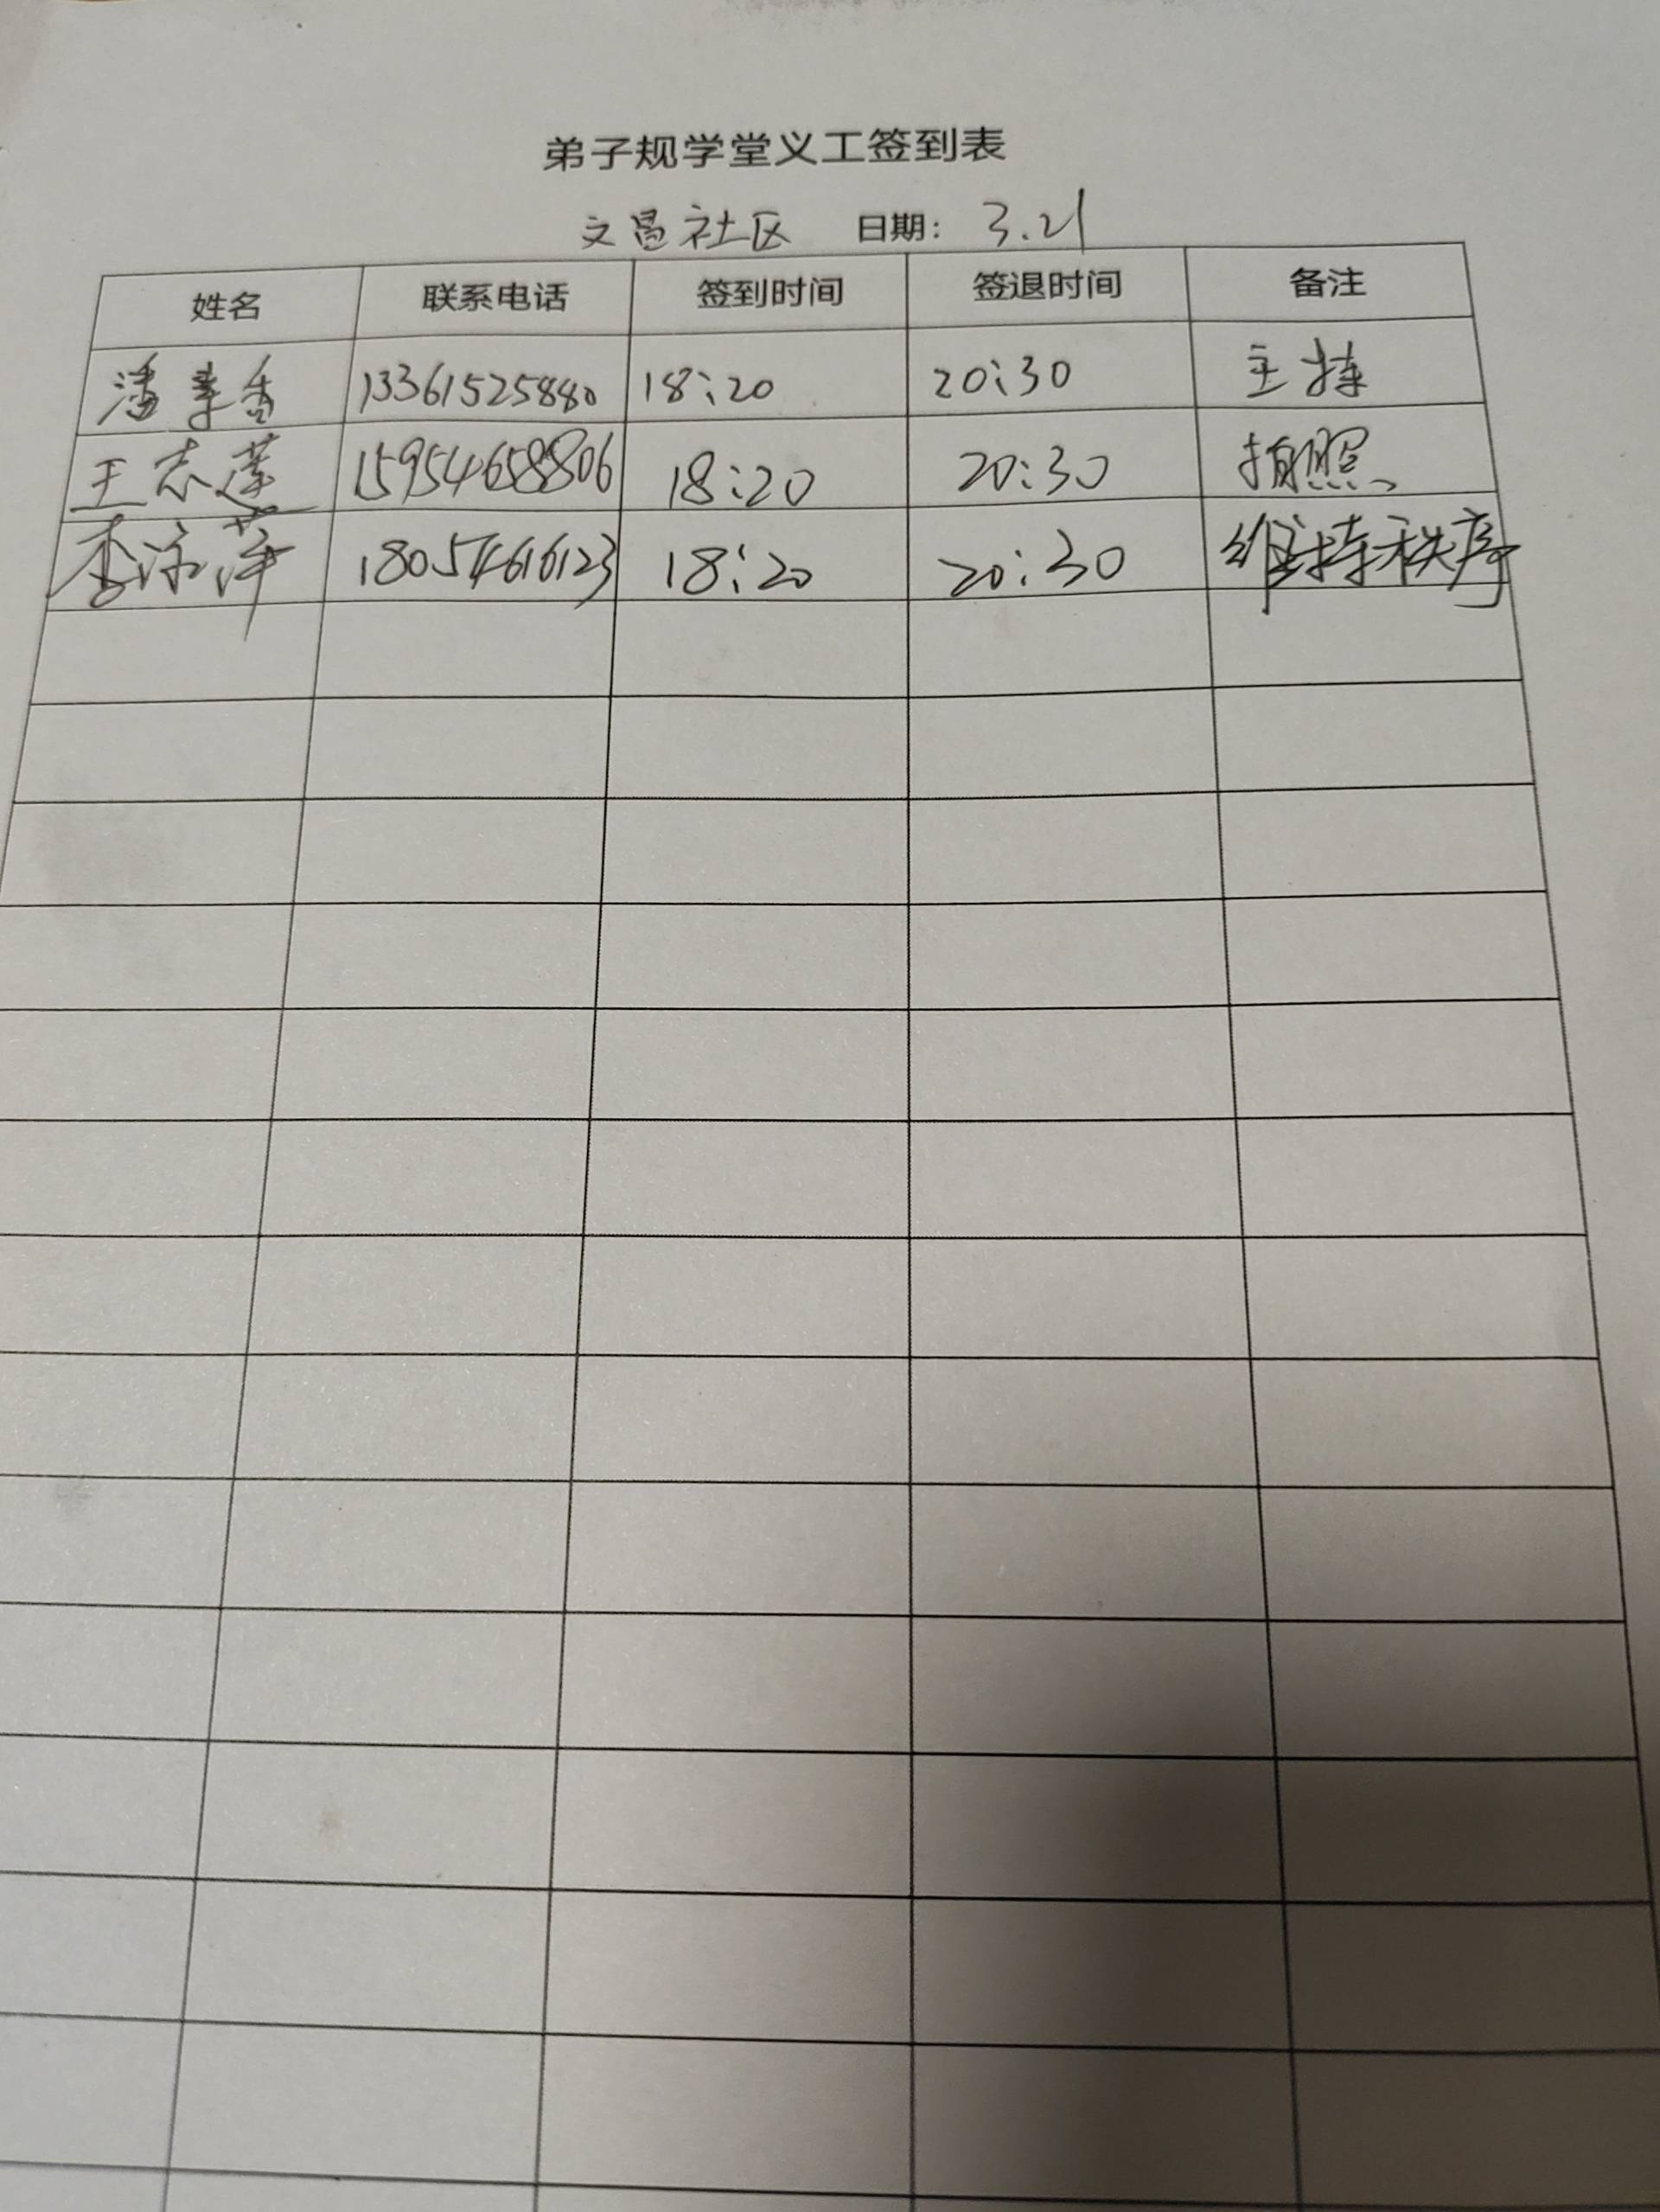 弟子规学堂义工签到表
文昌社区 日期: 3.21
姓名 联系电话 签到时间 签退时间 备注
潘香 13361525880 18:20 20:30 主持
王志莲 15954658806 18:20 20:30 拍照
李萍 18054616123 18:20 20:30 维持秩序